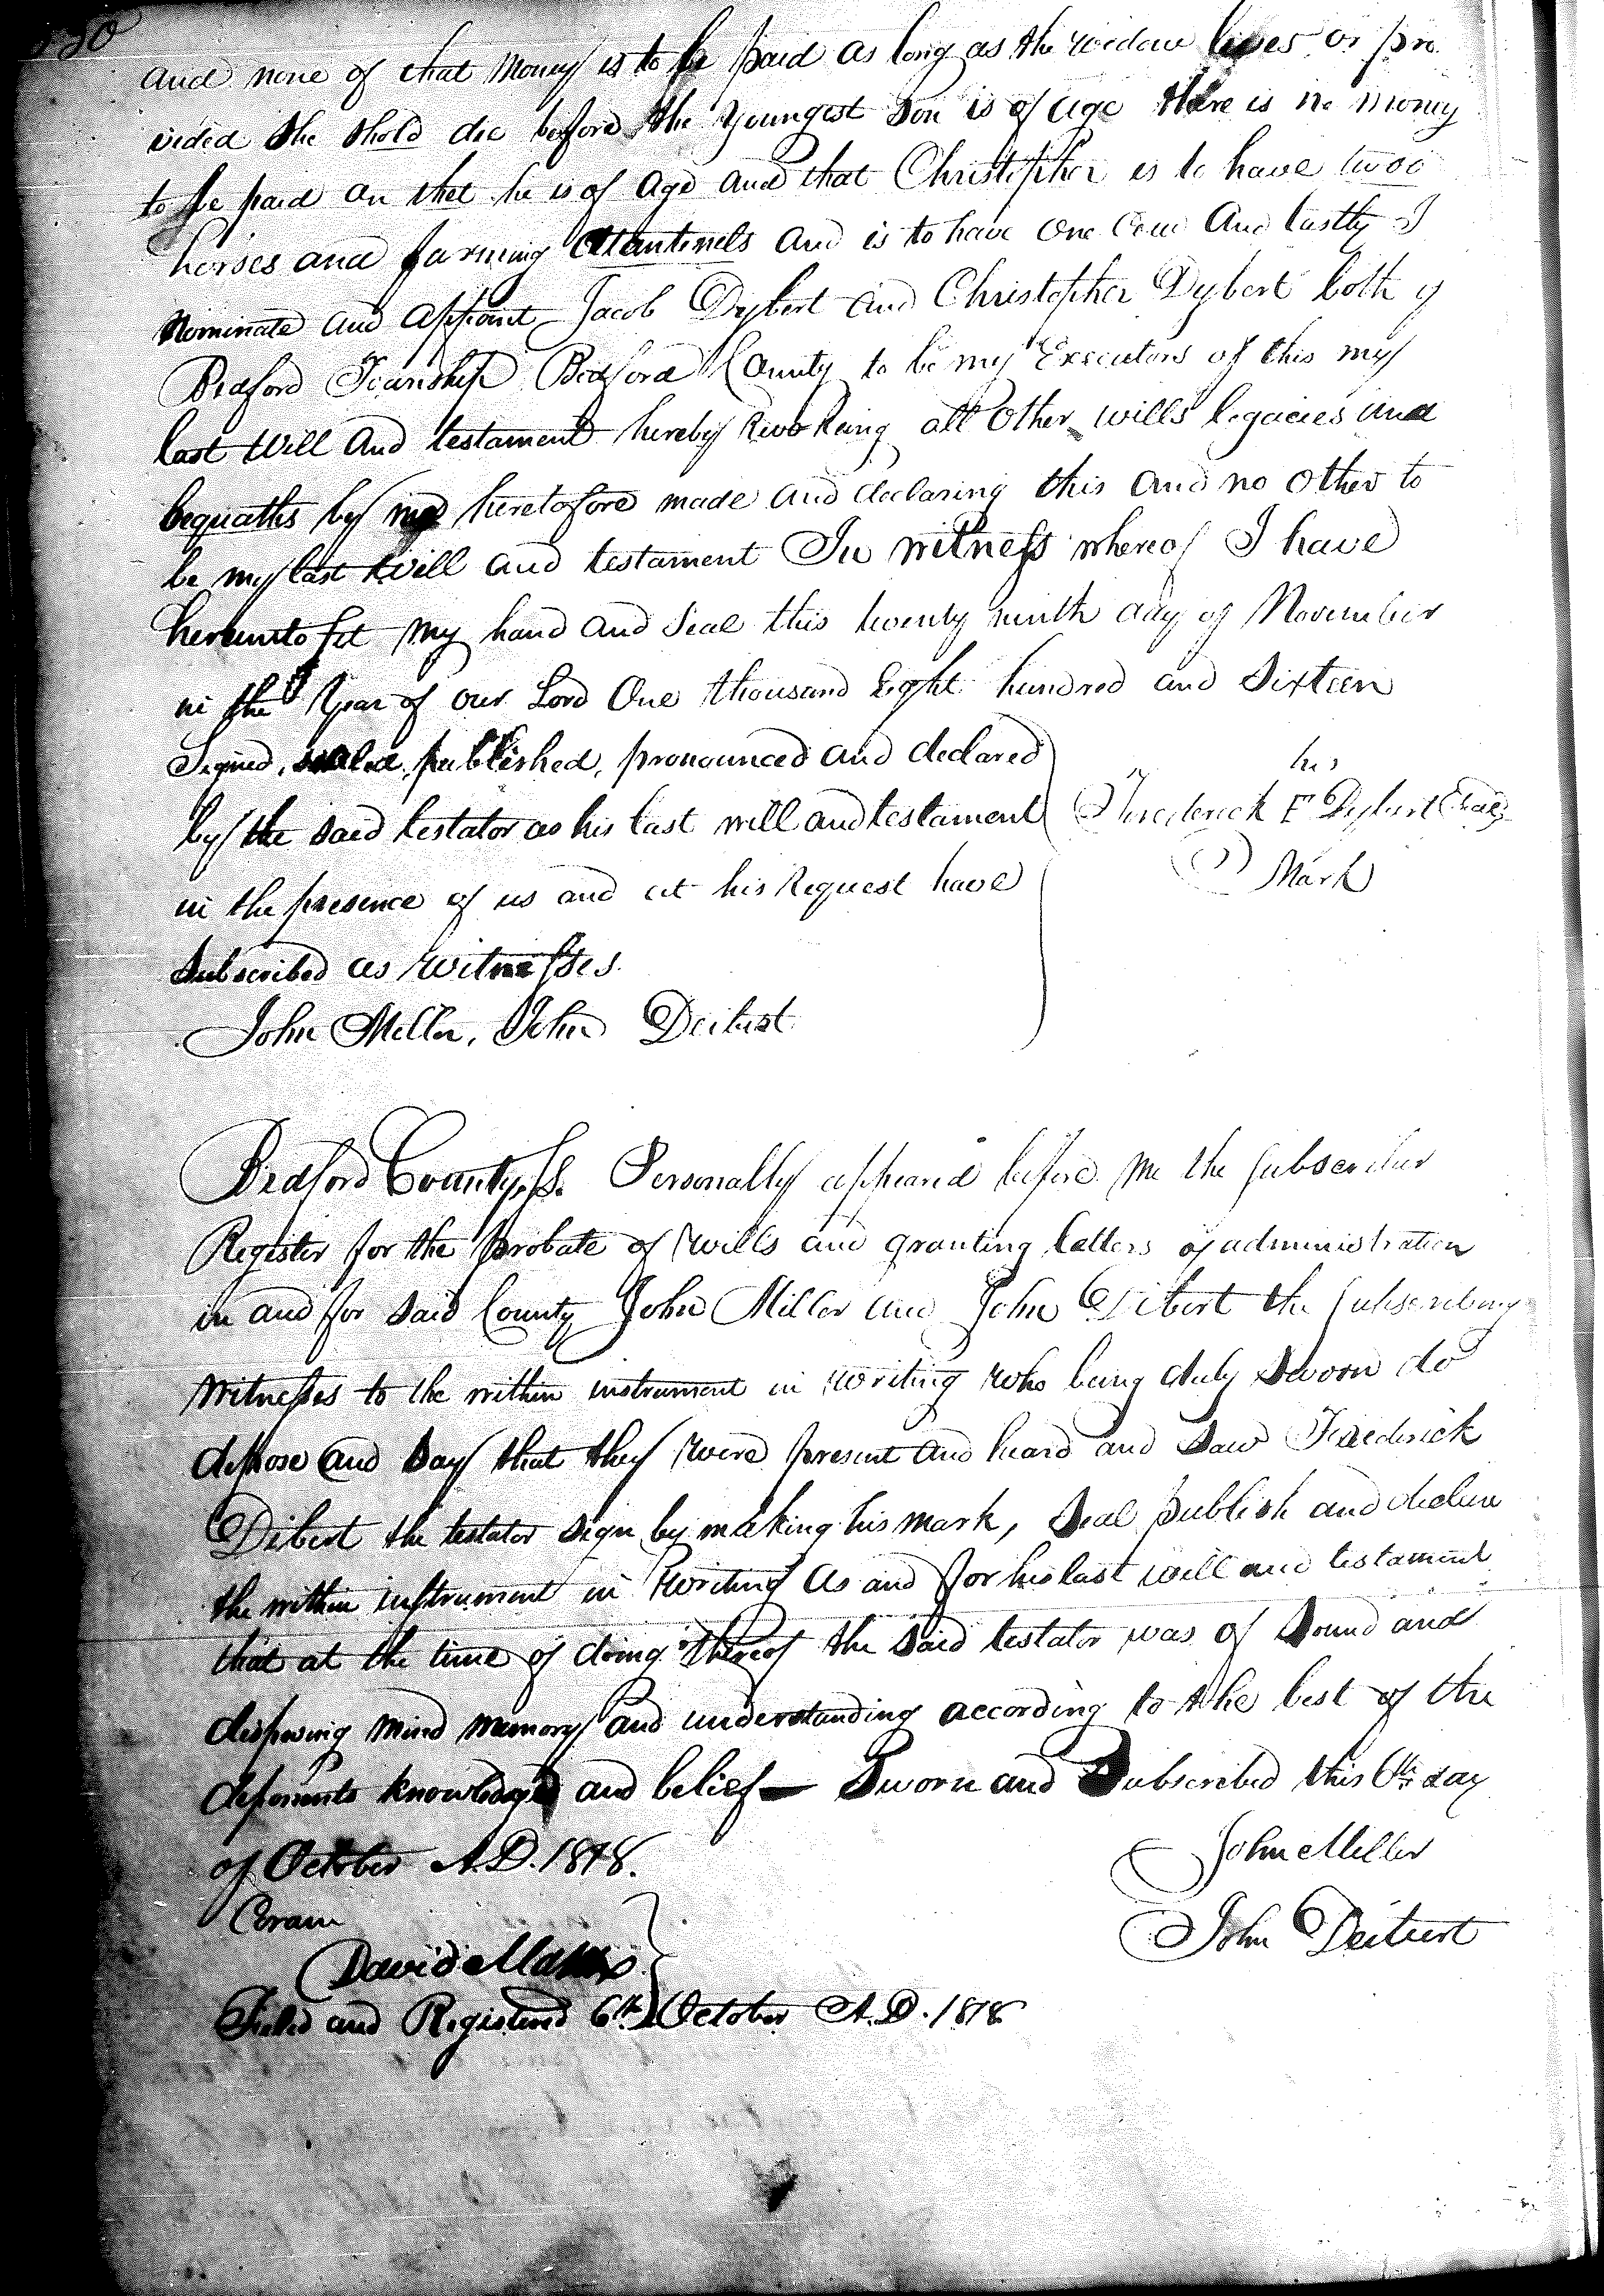 and none of that Money is to be paid as long as the widow lives or pro
vided she shold die before the youngest Son is of age there is no money
to be paid on thet he is of age and that Christopher is to have twoo
horses and farming and is to have one Cow And lastly I
Nominate and appoint Jacob Dybert and Christopher Dybert both of
Bedford Township Bedford County to be my Executors of this my
last Will and testament hereby Revoking all other wills legacies and
bequaths by me heretofore made and declaring this and no other to
be my last Will and testament In witness whereof I have
hereunto set my hand and Seal this twenty ninth day of November
in the Year of our Lord One thousand Eight hundred and Sixteen
Signed, sealed, published, pronounced and declared
by the said testator as his last will and testament
in the presence of us and at his Request have
Subscribed as Witnesses.
his
Frederick F Dybert Seal
Mark
John Miller, John Deibert
Bedford County, ss. Personally appeared before me the subscriber
Register for the probate of wills and granting letters of administration
in and for said County John Miller and John Dibert the subscribing
Witnesses to the within instrument in writing who being duly Sworn do
depose and say that they were present and heard and Saw Frederick
Dibert the testator sign by making his mark, Seal publish and declare
the within instrument in Writing as and for his last will and testament
that at the time of doing thereof the said testator was of Sound and
disposing mind memory and understanding according to the best of the
deponents knowledge and belief — Sworn and Subscribed this 6th day
of October A.D. 1818.
John Miller
Coram
John Deibert
David Mann
Filed and Registered 6th October A.D. 1818